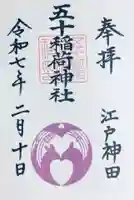 奉拝
江戸神田
五十稲荷神社
令和七年二月十日